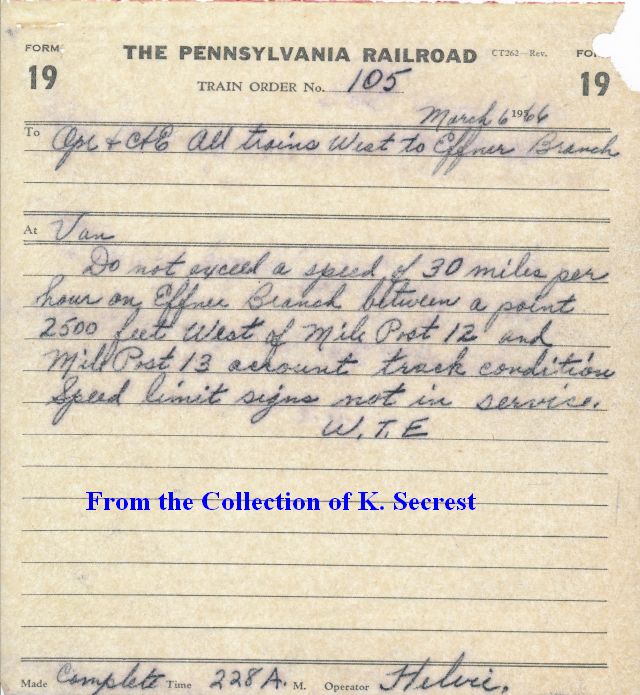 FORM 19
THE PENNSYLVANIA RAILROAD
CT262—Rev.
FO
19
TRAIN ORDER No. 105
March 6 1966
To Opr & C&E All trains West to Effner Branch
At Van
Do not exceed a speed of 30 miles per
hour on Effner Branch between a point
2500 feet West of Mile Post 12 and
Mile Post 13 account track condition
Speed limit signs not in service.
W.T.E
From the Collection of K. Secrest
Made Complete Time 228 A. M. Operator Helvie.